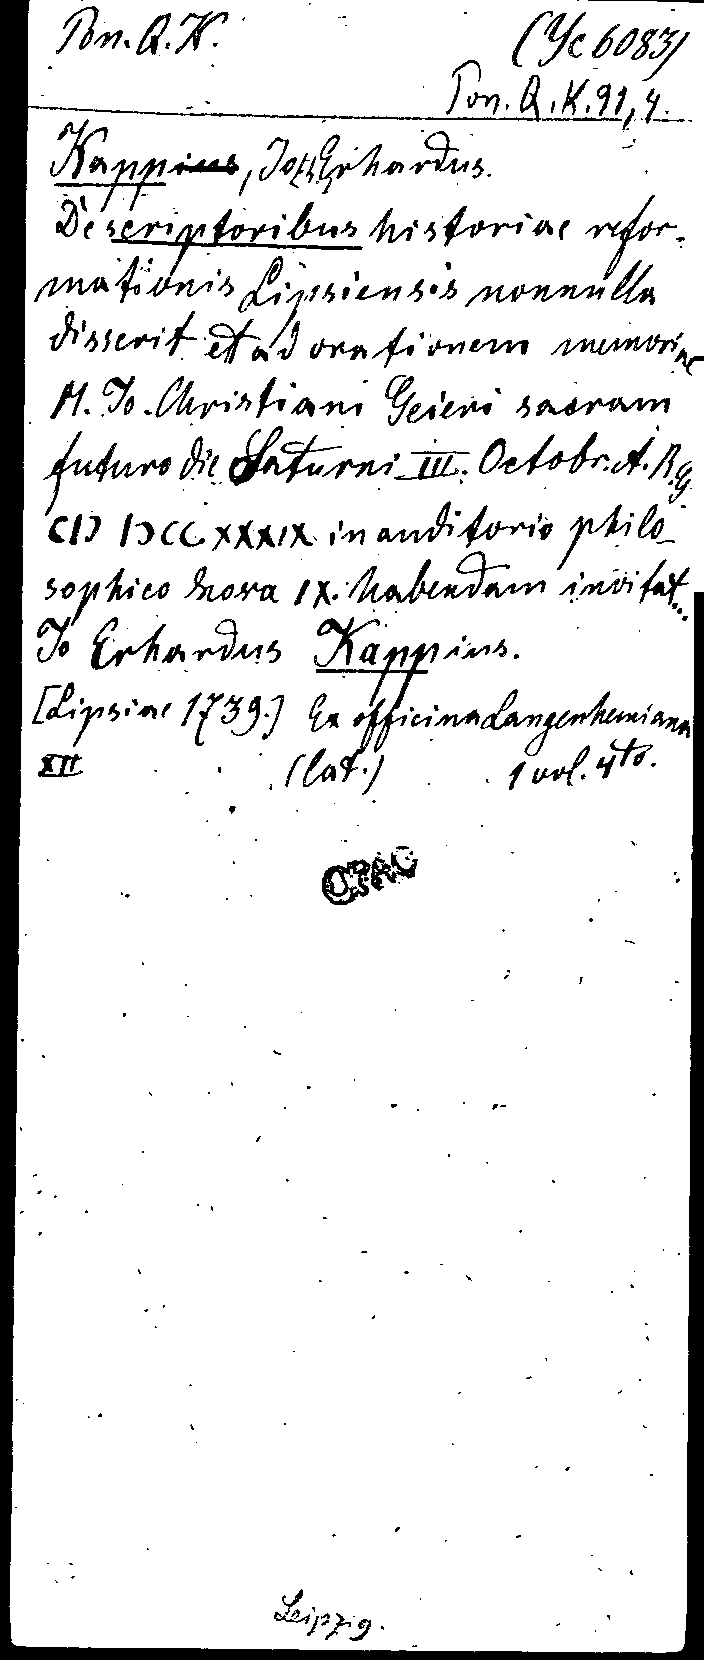 Pon. Q. K. (Yc 6083)
Pon. Q. K. 91, 4.
Kappius, Jo Erhardus.
De scriptoribus historiae refor-
mationis Lipsiensis nonnulla
disserit et ad orationem memoriae
M. Jo. Christiani Geieri sacram
futuro die Saturni III. Octobr. A. R. G
CIƆ IƆCCXXXIX in auditorio philo-
sophico hora IX. habendam invitat...
Jo Erhardus Kappius.
[Lipsiae 1739.] Ex officina Langenhemiana
XII (lat.) 1 vol. 4to.
Leipzig.